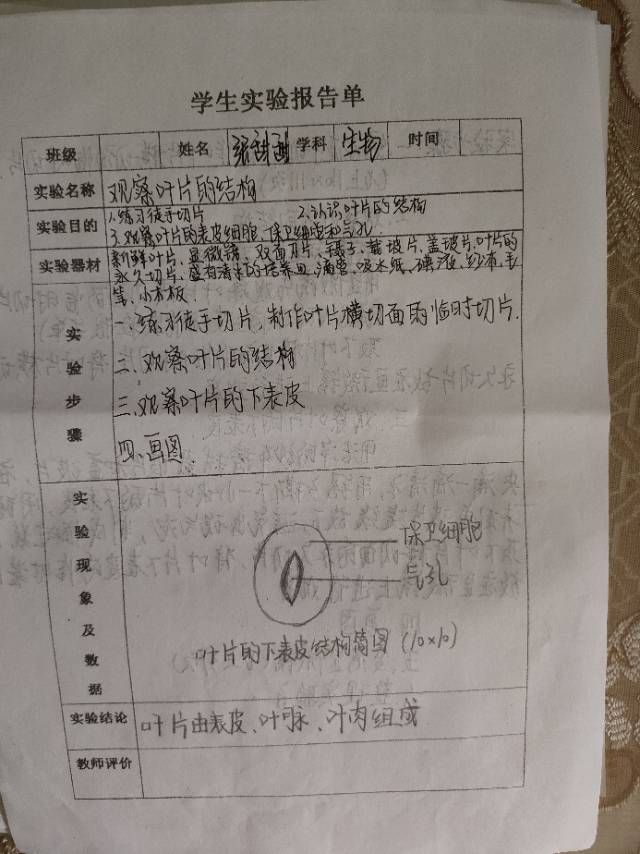 学生实验报告单
班级 姓名 学科 生物 时间
实验名称 观察叶片的结构
实验目的 1.练习徒手切片 2.认识叶片的结构
3.观察叶片的表皮细胞、保卫细胞和气孔
实验器材 新鲜叶片、显微镜、双面刀片、镊子、载玻片、盖玻片、叶片的
永久切片、盛有清水的培养皿、滴管、吸水纸、碘液、纱布、毛
笔、小木板.
实验步骤
一、练习徒手切片,制作叶片横切面的临时切片.
二.观察叶片的结构
三.观察叶片的下表皮
四.画图
实验现象及数据
保卫细胞
气孔
叶片的下表皮结构简图(10×10)
实验结论 叶片由表皮、叶脉、叶肉组成
教师评价